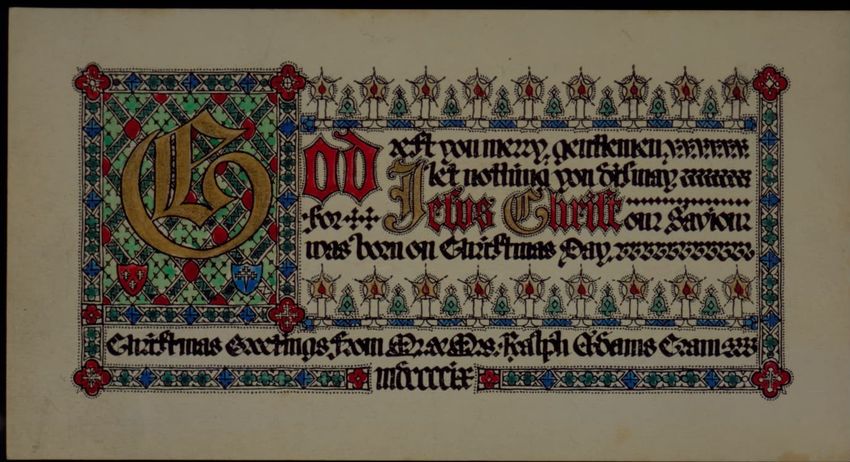 God rest you merry, gentlemen,
let nothing you dismay
For Jesus Christ our Saviour
was born on Christmas Day,
Christmas Greetings from Mr & Mrs. Ralph Adams Cram
mdccccix